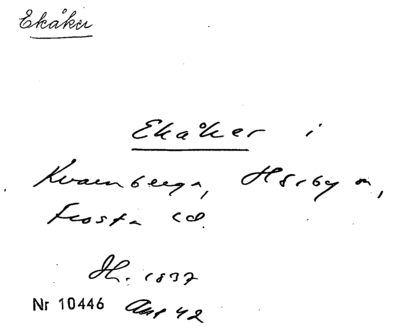 Ekåker
Ekåker i
Kvarnberga, Hörby sn,
Frosta hd.
Sk. 1837
Nr 10446